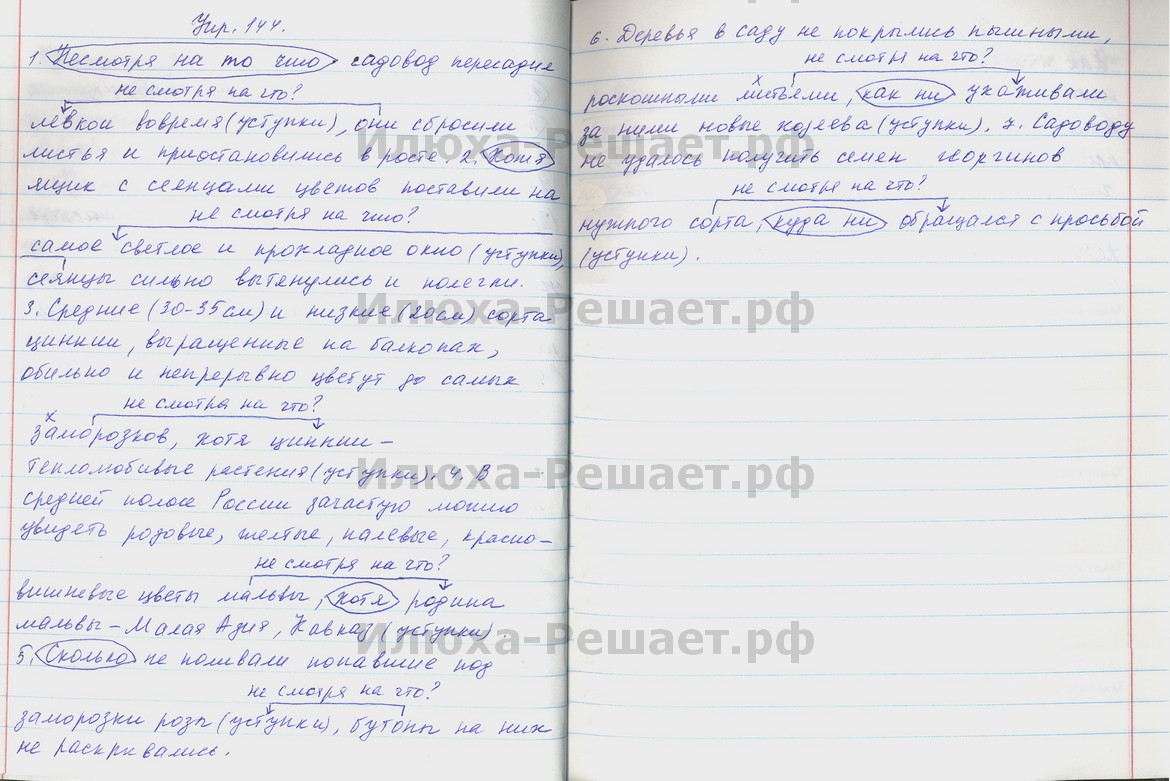 Упр. 144.
1. Несмотря на то что садовод пересадил
не смотря на что?
левкои вовремя (уступки), они сбросили
листья и приостановились в росте. 2. Хотя
ящик с сеянцами цветов поставили на
не смотря на что?
самое светлое и прохладное окно (уступки),
сеянцы сильно вытянулись и полегли.
3. Средние (30-35 см) и низкие (20 см) сорта
циннии, выращенные на балконах,
обильно и непрерывно цветут до самых
не смотря на что?
х
заморозков, хотя циннии –
теплолюбивые растения (уступки). 4. В
средней полосе России зачастую можно
увидеть розовые, желтые, палевые, красно-
не смотря на что?
вишневые цветы мальвы, хотя родина
мальвы – Малая Азия, Кавказ (уступки).
5. Сколько не поливали попавшие под
не смотря на что?
заморозки розы (уступки), бутоны на них
не раскрывались.
6. Деревья в саду не покрылись пышными,
не смотря на что?
х
роскошными листьями, как ни ухаживали
за ними новые хозяева (уступки). 7. Садоводу
не удалось получить семян георгинов
не смотря на что?
нужного сорта, куда ни обращался с просьбой
(уступки).
Илюха-Решает.рф
Илюха-Решает.рф
Илюха-Решает.рф
Илюха-Решает.рф
Илюха-Решает.рф